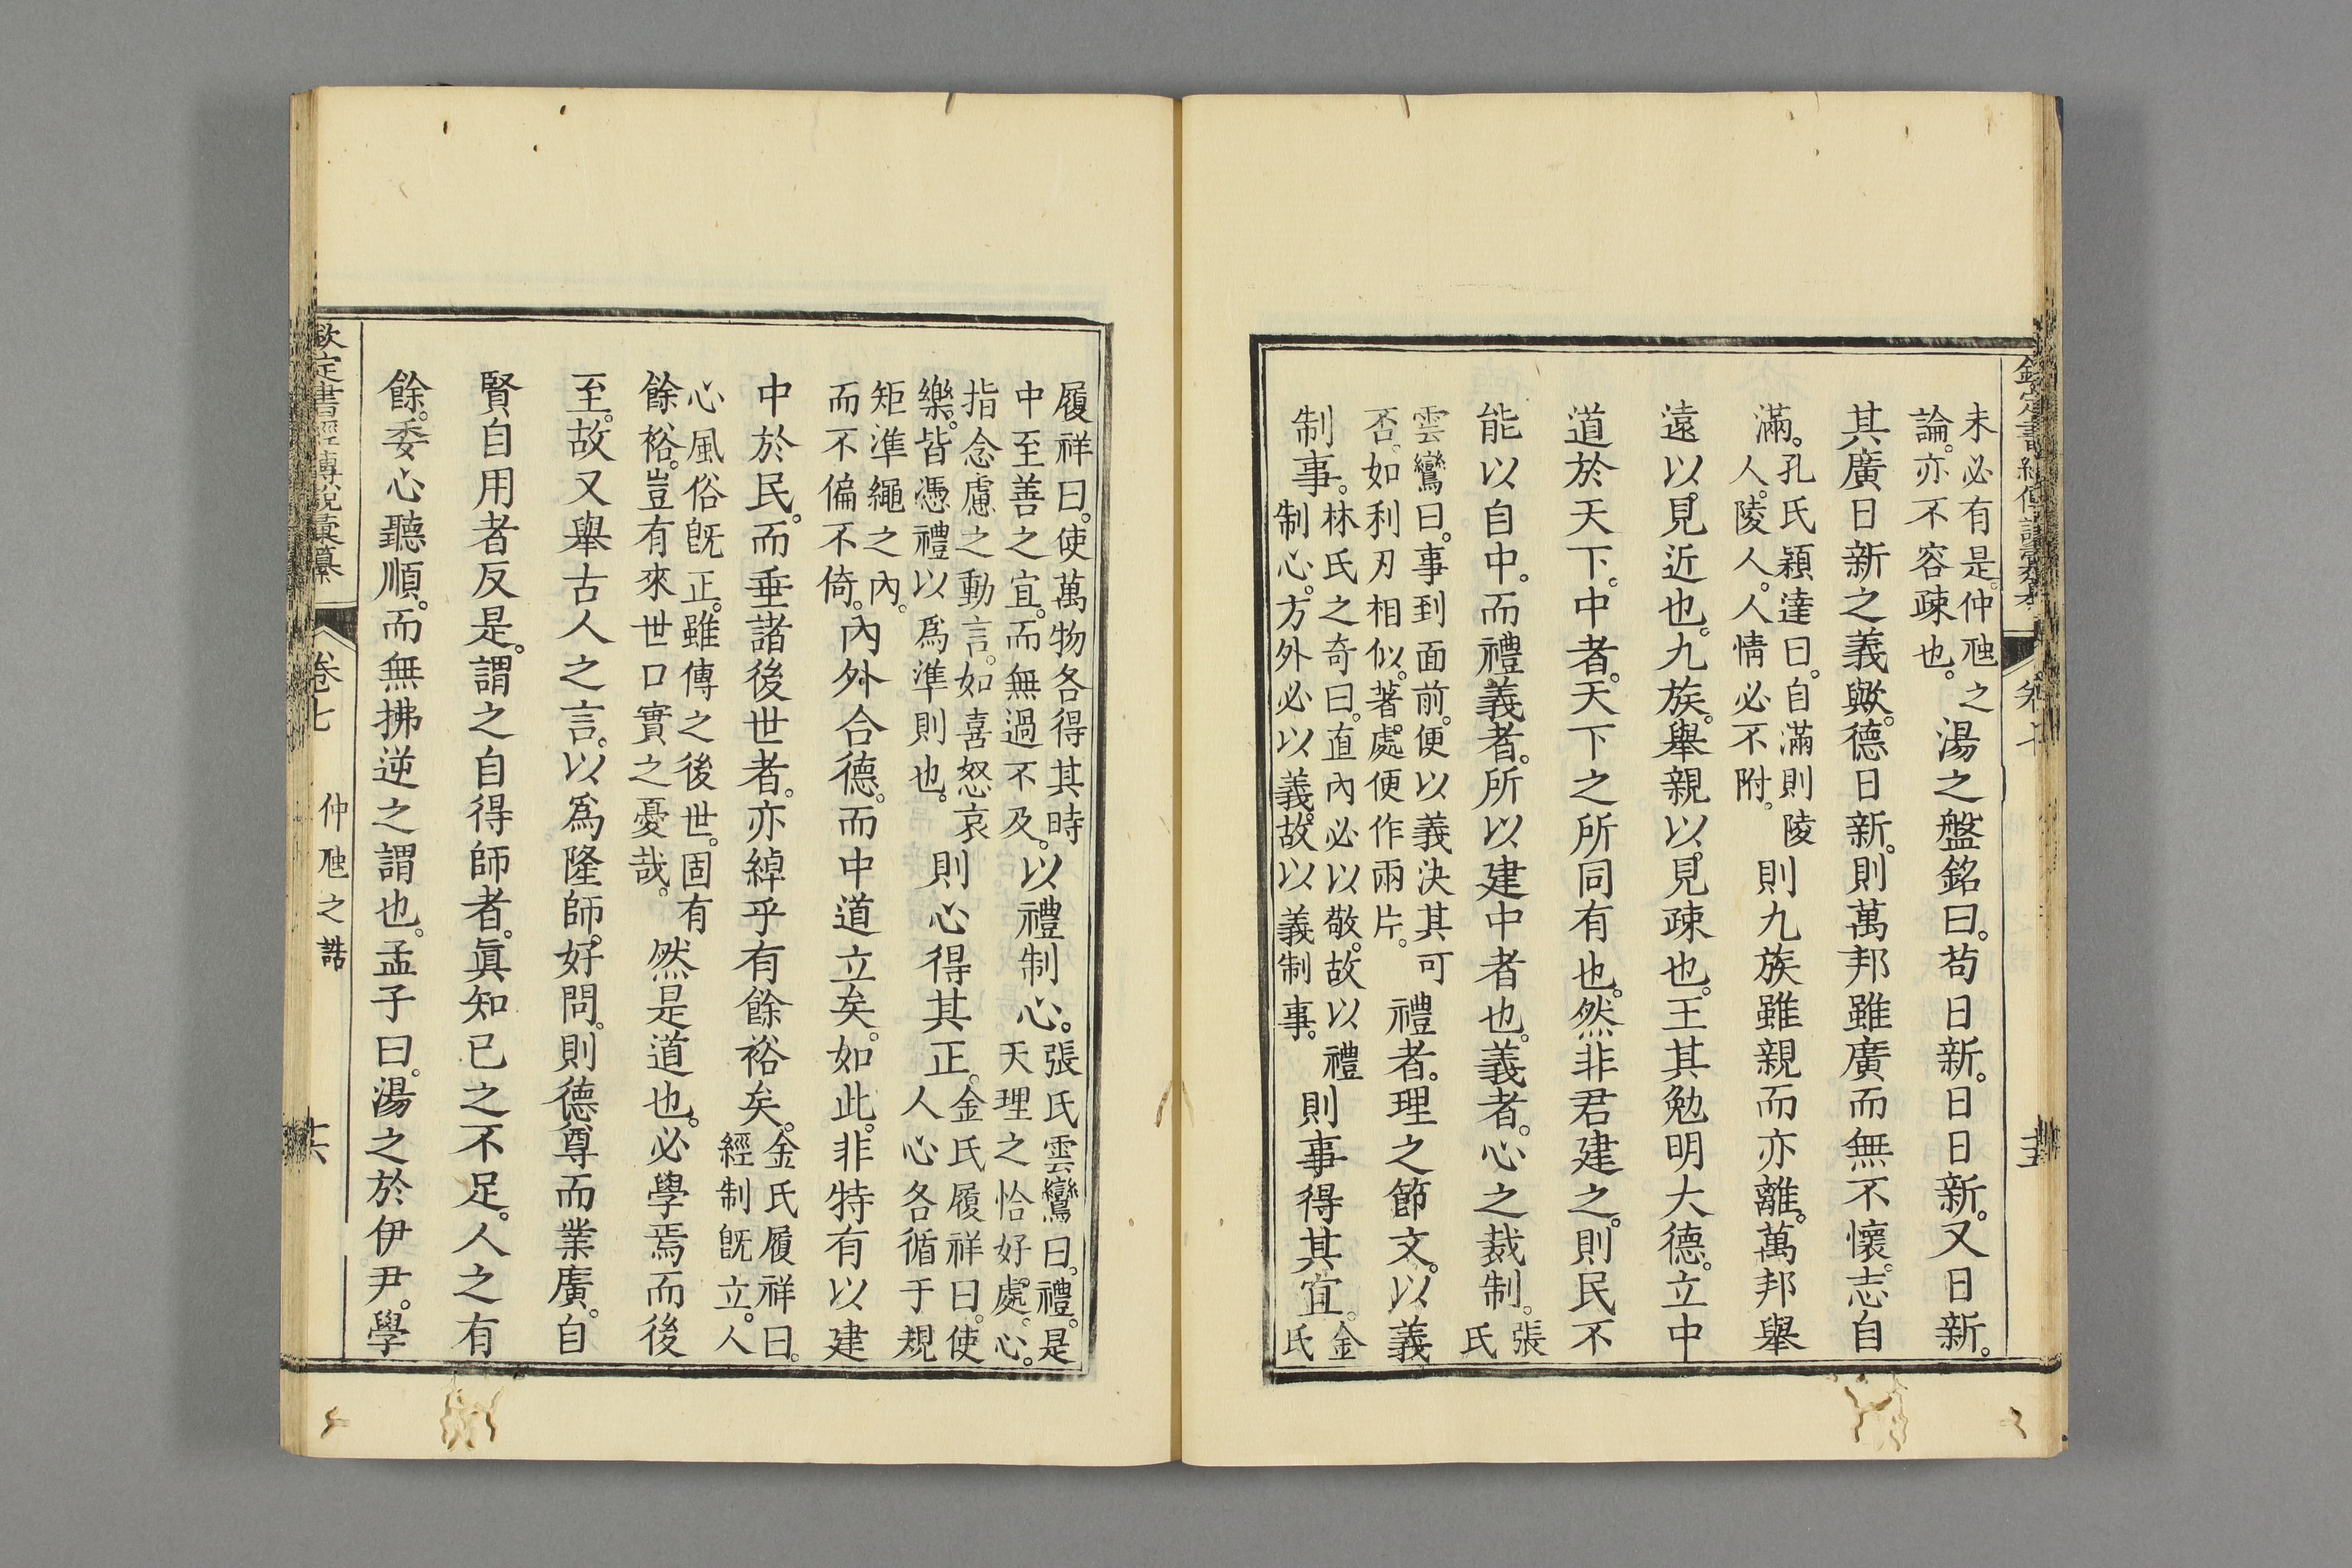 欽定書經傳說彙纂 卷七
未必有是。仲虺之論。亦不容疎也。湯之盤銘曰。苟日新。日日新。又日新。
其廣日新之義歟。德日新。則萬邦雖廣而無不懷。志自
滿。孔氏穎達曰。自滿則陵人。陵人。人情必不附。則九族雖親而亦離。萬邦舉
遠以見近也。九族。舉親以見疎也。王其勉明大德。立中
道於天下。中者。天下之所同有也。然非君建之。則民不
能以自中。而禮義者。所以建中者也。義者。心之裁制。張氏
雲鸞曰。事到面前。便以義決其可否。如利刃相似。著處便作兩片。禮者。理之節文。以義
制事。林氏之奇曰。直內必以敬。故以禮制心。方外必以義。故以義制事。則事得其宜。金氏
履祥曰。使萬物各得其時中至善之宜。而無過不及。以禮制心。張氏雲鸞曰。禮。是天理之恰好處。心。
指念慮之動言。如喜怒哀樂。皆憑禮以爲準則也。則心得其正。金氏履祥曰。使人心各循于規
矩準繩之內。而不偏不倚。內外合德。而中道立矣。如此。非特有以建
中於民。而垂諸後世者。亦綽乎有餘裕矣。金氏履祥曰。經制旣立。人
心風俗旣正。雖傳之後世。固有餘裕。豈有來世口實之憂哉。然是道也。必學焉而後
至。故又舉古人之言。以爲隆師。好問。則德尊而業廣。自
賢自用者反是。謂之自得師者。眞知己之不足。人之有
餘。委心聽順。而無拂逆之謂也。孟子曰。湯之於伊尹。學
欽定書經傳說彙纂 卷七 仲虺之誥